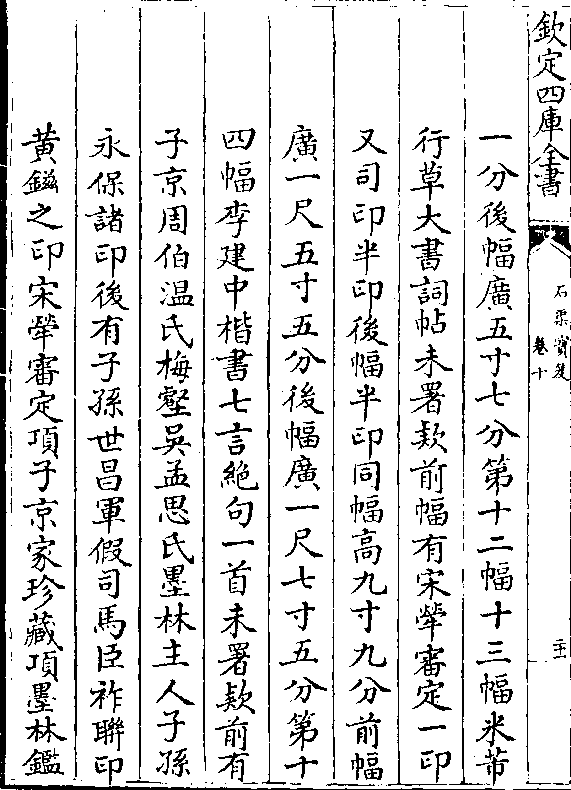 欽定四庫全書
石渠寳笈
卷十
一分後幅廣五寸七分第十二幅十三幅米芾
行草大書詞帖未署欵前幅有宋犖審定一印
又司印半印後幅半印同幅高九寸九分前幅
廣一尺五寸五分後幅廣一尺七寸五分第十
四幅李建中楷書七言絶句一首未署欵前有
子京周伯温氏梅壑吳孟思氏墨林主人子孫
永保諸印後有子孫世昌軍假司馬臣祚聯印
黄鎡之印宋犖審定項子京家珍藏項墨林鑑